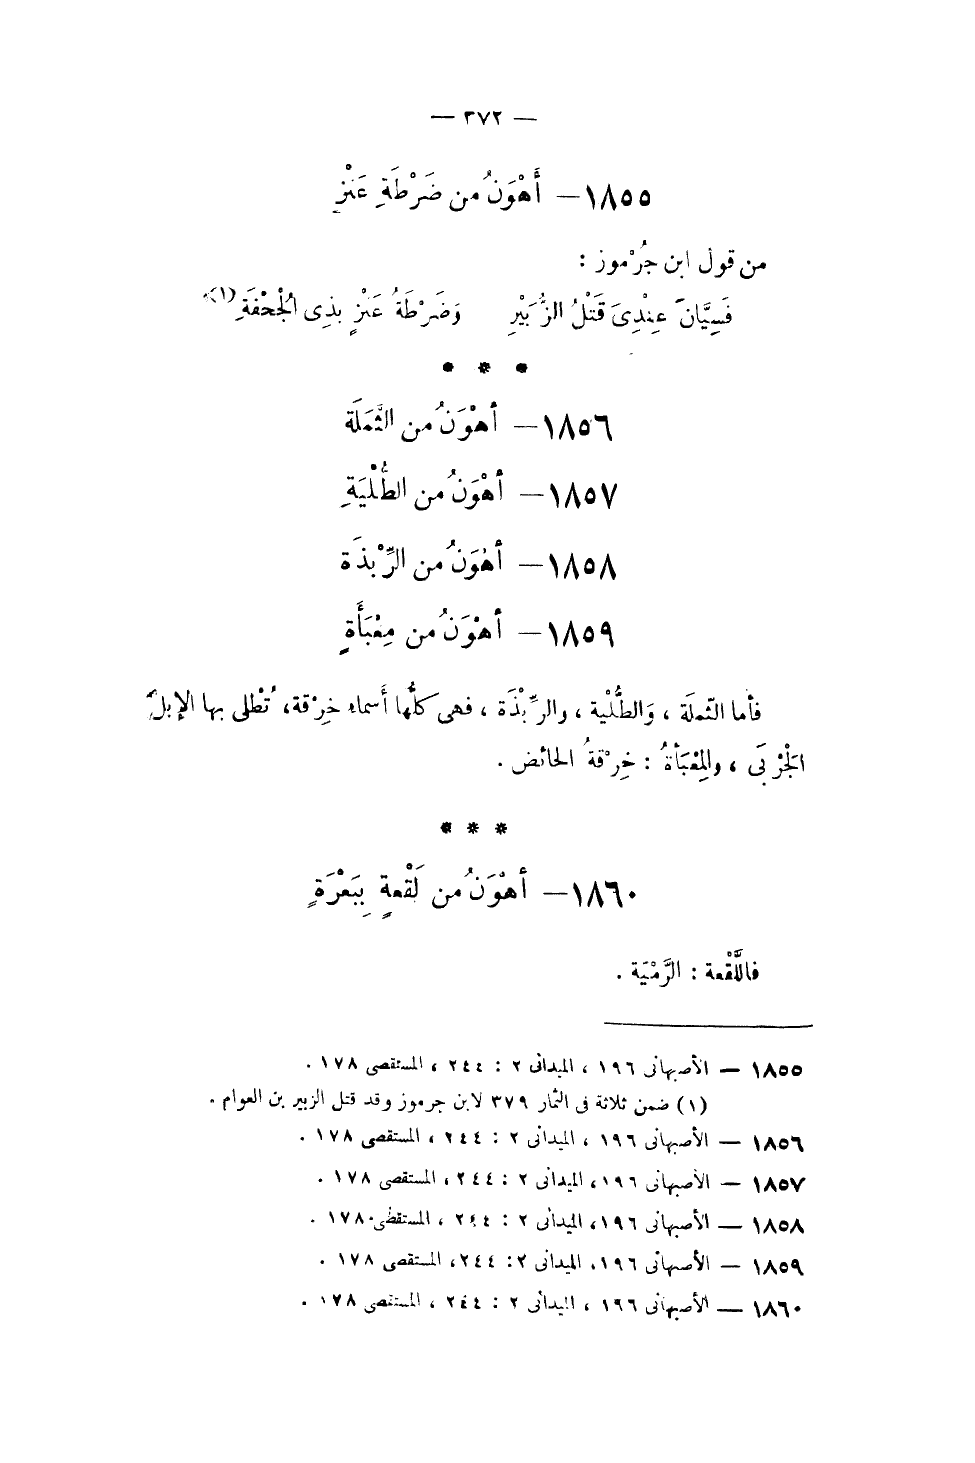 — ٣٧٢ —
١٨٥٥ — أَهْوَنُ من ضَرْطَةِ عَنْزٍ
من قول ابن جُرْموز :
فَسِيَّانَ عِنْدِىَ قَتْلُ الزُّبَيْرِ وَضَرْطَةُ عَنْزٍ بِذِى الْجُحْفَةِ(١)
● * ●
١٨٥٦ — أهْوَنُ من الثَّمَلَة
١٨٥٧ — أهْوَنُ من الطُّلْيَةِ
١٨٥٨ — أهْوَنُ من الرِّبْذَة
١٨٥٩ — أهْوَنُ من مِعْبَأَةٍ
فأما الثّملَة ، وَالطُّلْية ، والرِّبْذَة ، فهى كلُّها أَسماء خِرْقة، تُطْلى بها الإبلُ
الجَرْبَى ، والمِعْبَأةُ : خِرْقةُ الحائض .
* * *
١٨٦٠ — أهْوَنُ من لَقْعةٍ بِبَعْرَةٍ
فاللَّقْعة : الرَّمْيَة .
١٨٥٥ — الأصبهانى ١٩٦ ، الميدانى ٢ : ٢٤٤ ، المستقصى ١٧٨ .
(١) ضمن ثلاثة فى الثمار ٣٧٩ لابن جرموز وقد قتل الزبير بن العوام .
١٨٥٦ — الأصبهانى ١٩٦ ، الميدانى ٢ : ٢٤٤ ، المستقصى ١٧٨ .
١٨٥٧ — الأصبهانى ١٩٦، الميدانى ٢ : ٢٤٤، المستقصى ١٧٨ .
١٨٥٨ — الأصبهانى ١٩٦، الميدانى ٢ : ٢٤٤ ، المستقصى ١٧٨ .
١٨٥٩ — الأصبهانى ١٩٦، الميدانى ٢ : ٢٤٤، المستقصى ١٧٨ .
١٨٦٠ — الأصبهانى ١٩٦ ، الميدانى ٢ : ٢٤٤ ، المستقصى ١٧٨ .